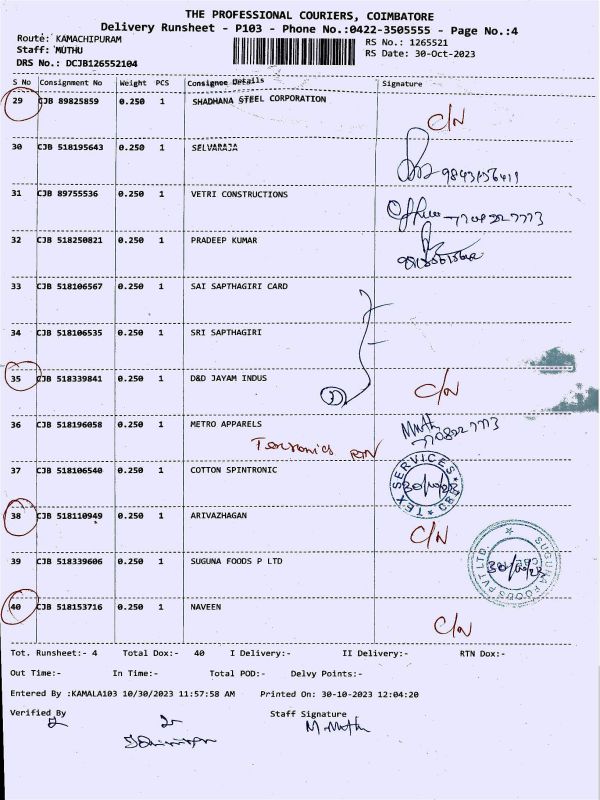 THE PROFESSIONAL COURIERS, COIMBATORE
Delivery Runsheet - P103 - Phone No.:0422-3505555 - Page No.:4
Route: KAMACHIPURAM RS No.: 1265521
Staff: MUTHU RS Date: 30-Oct-2023
DRS No.: DCJB126552104
S No Consignment No Weight PCS Consignee Details Signature
29 CJB 89825859 0.250 1 SHADHANA STEEL CORPORATION C/N
30 CJB 518195643 0.250 1 SELVARAJA
31 CJB 89755536 0.250 1 VETRI CONSTRUCTIONS Office
32 CJB 518250821 0.250 1 PRADEEP KUMAR
33 CJB 518106567 0.250 1 SAI SAPTHAGIRI CARD
34 CJB 518106535 0.250 1 SRI SAPTHAGIRI
35 CJB 518339841 0.250 1 D&D JAYAM INDUS C/N
36 CJB 518196058 0.250 1 METRO APPARELS
RTN
37 CJB 518106540 0.250 1 COTTON SPINTRONIC TEX SERVICES CBE
38 CJB 518110949 0.250 1 ARIVAZHAGAN C/N
39 CJB 518339606 0.250 1 SUGUNA FOODS P LTD SUGUNA FOODS PVT LTD
40 CJB 518153716 0.250 1 NAVEEN C/N
Tot. Runsheet:- 4 Total Dox:- 40 I Delivery:- II Delivery:- RTN Dox:-
Out Time:- In Time:- Total POD:- Delvy Points:-
Entered By :KAMALA103 10/30/2023 11:57:58 AM Printed On: 30-10-2023 12:04:20
Verified By Staff Signature
M. Muthu